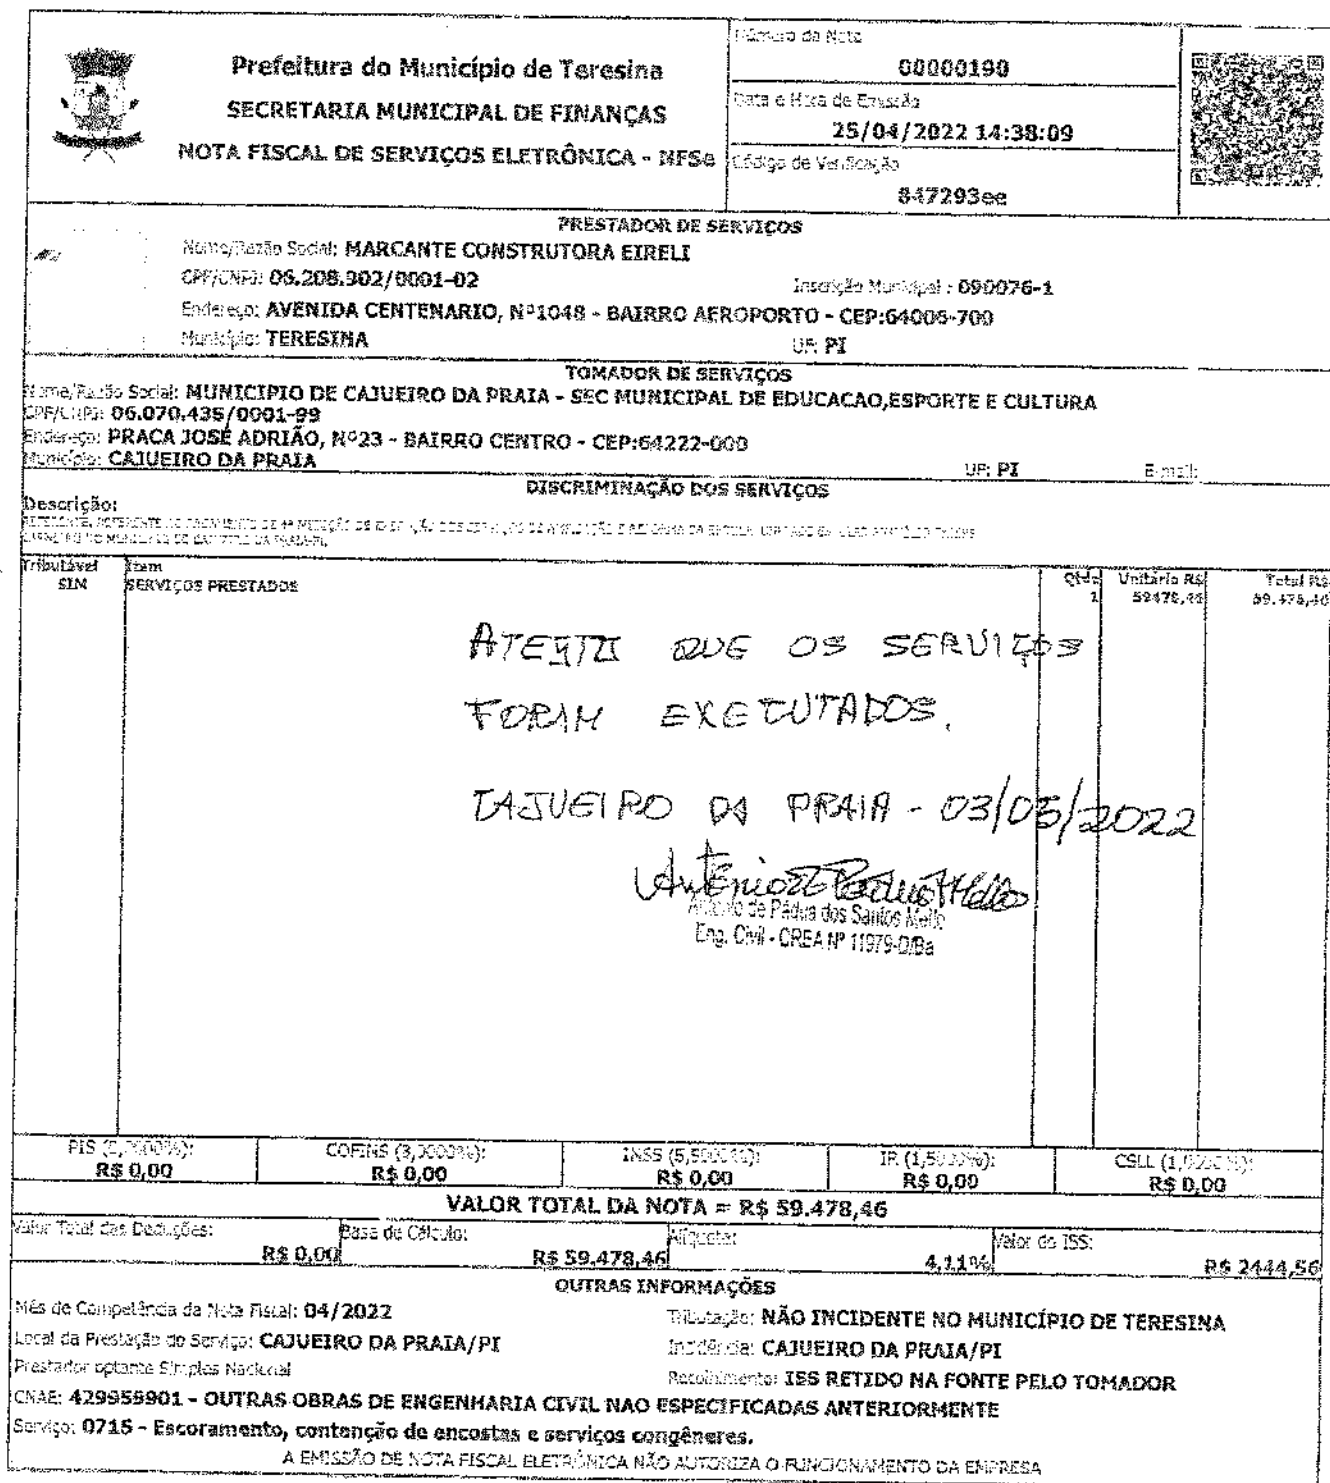 Prefeitura do Município de Teresina
SECRETARIA MUNICIPAL DE FINANÇAS
NOTA FISCAL DE SERVIÇOS ELETRÔNICA - NFSe
Número da Nota
00000190
Data e Hora de Emissão
25/04/2022 14:38:09
Código de Verificação
847293ee
PRESTADOR DE SERVIÇOS
Nome/Razão Social: MARCANTE CONSTRUTORA EIRELI
CPF/CNPJ: 06.208.302/0001-02 Inscrição Municipal : 090076-1
Endereço: AVENIDA CENTENARIO, Nº1048 - BAIRRO AEROPORTO - CEP:64006-700
Município: TERESINA UF: PI
TOMADOR DE SERVIÇOS
Nome/Razão Social: MUNICIPIO DE CAJUEIRO DA PRAIA - SEC MUNICIPAL DE EDUCACAO,ESPORTE E CULTURA
CPF/CNPJ: 06.070.435/0001-99
Endereço: PRACA JOSÉ ADRIÃO, Nº23 - BAIRRO CENTRO - CEP:64222-000
Município: CAJUEIRO DA PRAIA UF: PI E-mail:
DISCRIMINAÇÃO DOS SERVIÇOS
Descrição:
Tributável Item Qtde Unitário R$ Total R$
SIM SERVIÇOS PRESTADOS 1 59478,46 59.478,46
ATESTO QUE OS SERVIÇOS
FORAM EXECUTADOS.
CAJUEIRO DA PRAIA - 03/05/2022
Antônio de Pádua dos Santos Mello
Eng. Civil - CREA Nº 11979-D/Ba
PIS COFINS INSS IR CSLL
R$ 0,00 R$ 0,00 R$ 0,00 R$ 0,00 R$ 0,00
VALOR TOTAL DA NOTA = R$ 59.478,46
Valor Total das Deduções: Base de Cálculo: Alíquota: Valor do ISS:
R$ 0,00 R$ 59.478,46 4,11% R$ 2444,56
OUTRAS INFORMAÇÕES
Mês de Competência da Nota Fiscal: 04/2022 Tributação: NÃO INCIDENTE NO MUNICÍPIO DE TERESINA
Local da Prestação do Serviço: CAJUEIRO DA PRAIA/PI Incidência: CAJUEIRO DA PRAIA/PI
Prestador optante Simples Nacional Recolhimento: ISS RETIDO NA FONTE PELO TOMADOR
CNAE: 429959901 - OUTRAS OBRAS DE ENGENHARIA CIVIL NAO ESPECIFICADAS ANTERIORMENTE
Serviço: 0715 - Escoramento, contenção de encostas e serviços congêneres.
A EMISSÃO DE NOTA FISCAL ELETRÔNICA NÃO AUTORIZA O FUNCIONAMENTO DA EMPRESA